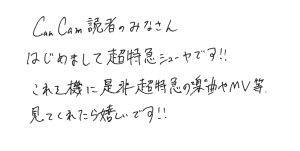 CanCam 読者のみなさん
はじめまして超特急シューヤです!!
これを機に是非超特急の楽曲やMV等
見てくれたら嬉しいです!!